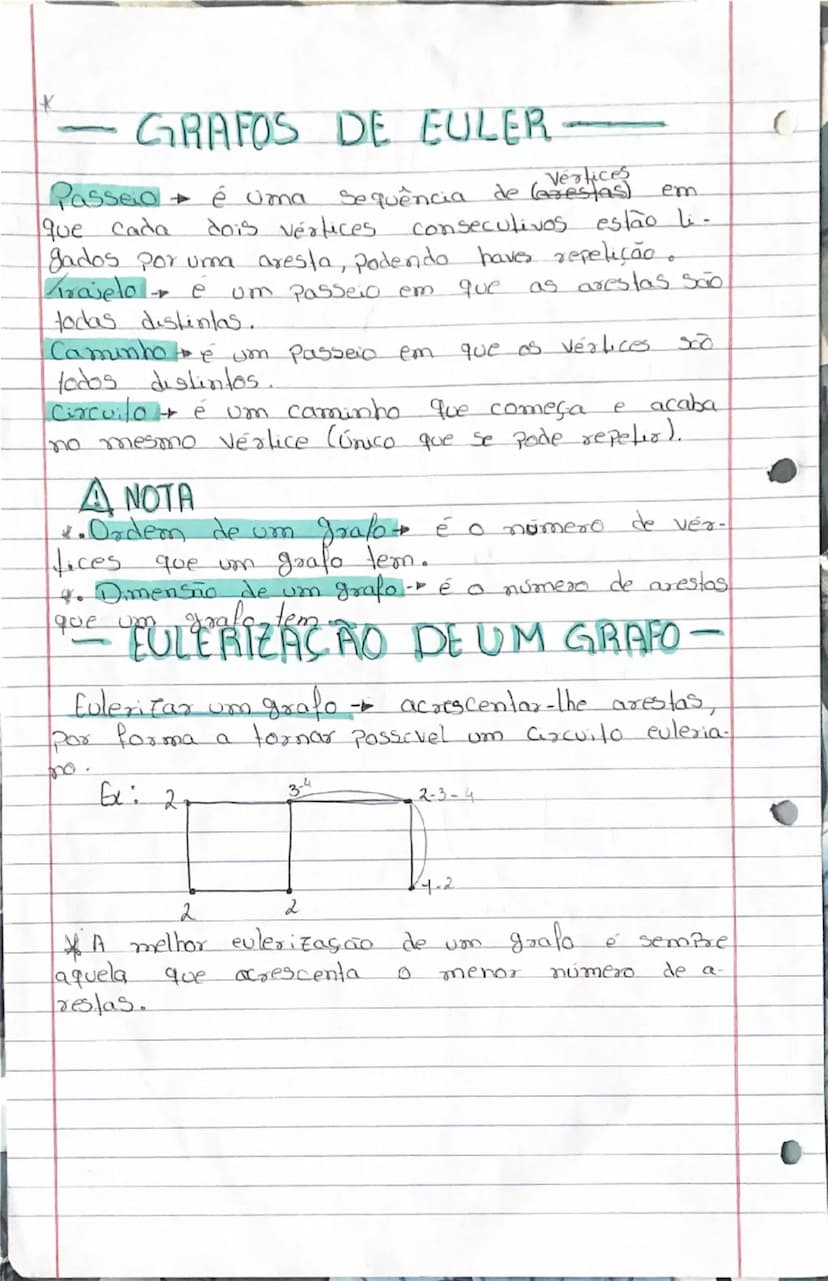 *
— GRAFOS DE EULER —
Vértices
Passeio → é uma sequência de (arestas) em
que cada dois vértices consecutivos estão li-
gados por uma aresta, podendo haver repetição.
Trajeto → é um passeio em que as arestas são
todas distintas.
Caminho → é um passeio em que os vértices são
todos distintos.
Circuito → é um caminho que começa e acaba
no mesmo vértice (único que se pode repetir).
⚠ NOTA
*. Ordem de um grafo → é o número de vér-
tices que um grafo tem.
*. Dimensão de um grafo → é o número de arestas
que um grafo tem.
— EULERIZAÇÃO DE UM GRAFO —
Eulerizar um grafo → acrescentar-lhe arestas,
por forma a tornar possível um circuito euleria-
no.
Ex: 2 3-4 2-3-4
1-2
2 2
* A melhor eulerização de um grafo é sempre
aquela que acrescenta o menor número de a-
restas.